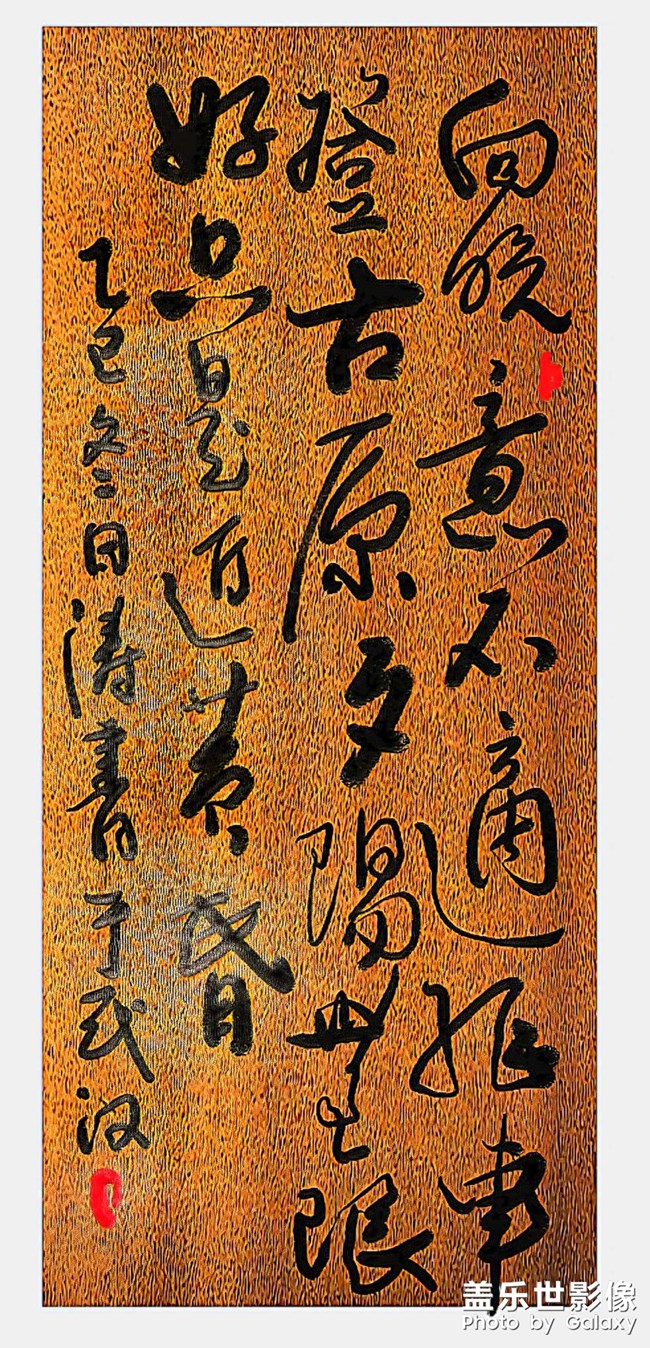 向晚意不適驱車
登古原夕陽無限
好只是近黄昏
乙巳冬日涛書于武汉
盖乐世影像
Photo by Galaxy